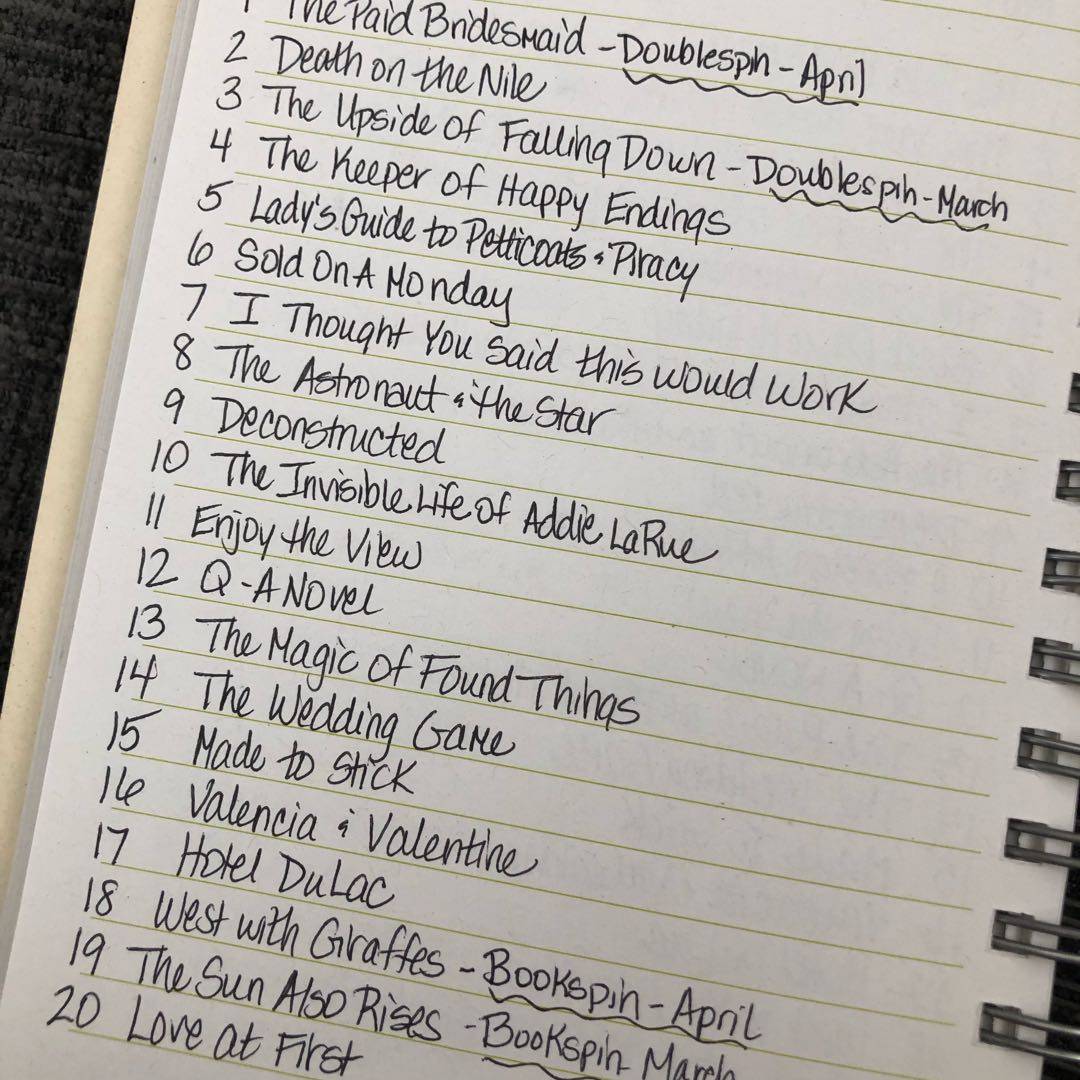 1 The Paid Bridesmaid - Doublespin - April
2 Death on the Nile
3 The Upside of Falling Down - Doublespin - March
4 The Keeper of Happy Endings
5 Lady's Guide to Petticoats & Piracy
6 Sold On A Monday
7 I Thought You Said this would work
8 The Astronaut & the Star
9 Deconstructed
10 The Invisible Life of Addie LaRue
11 Enjoy the View
12 Q - A Novel
13 The Magic of Found Things
14 The Wedding Game
15 Made to Stick
16 Valencia & Valentine
17 Hotel DuLac
18 West with Giraffes - Bookspin - April
19 The Sun Also Rises - Bookspin March
20 Love at First